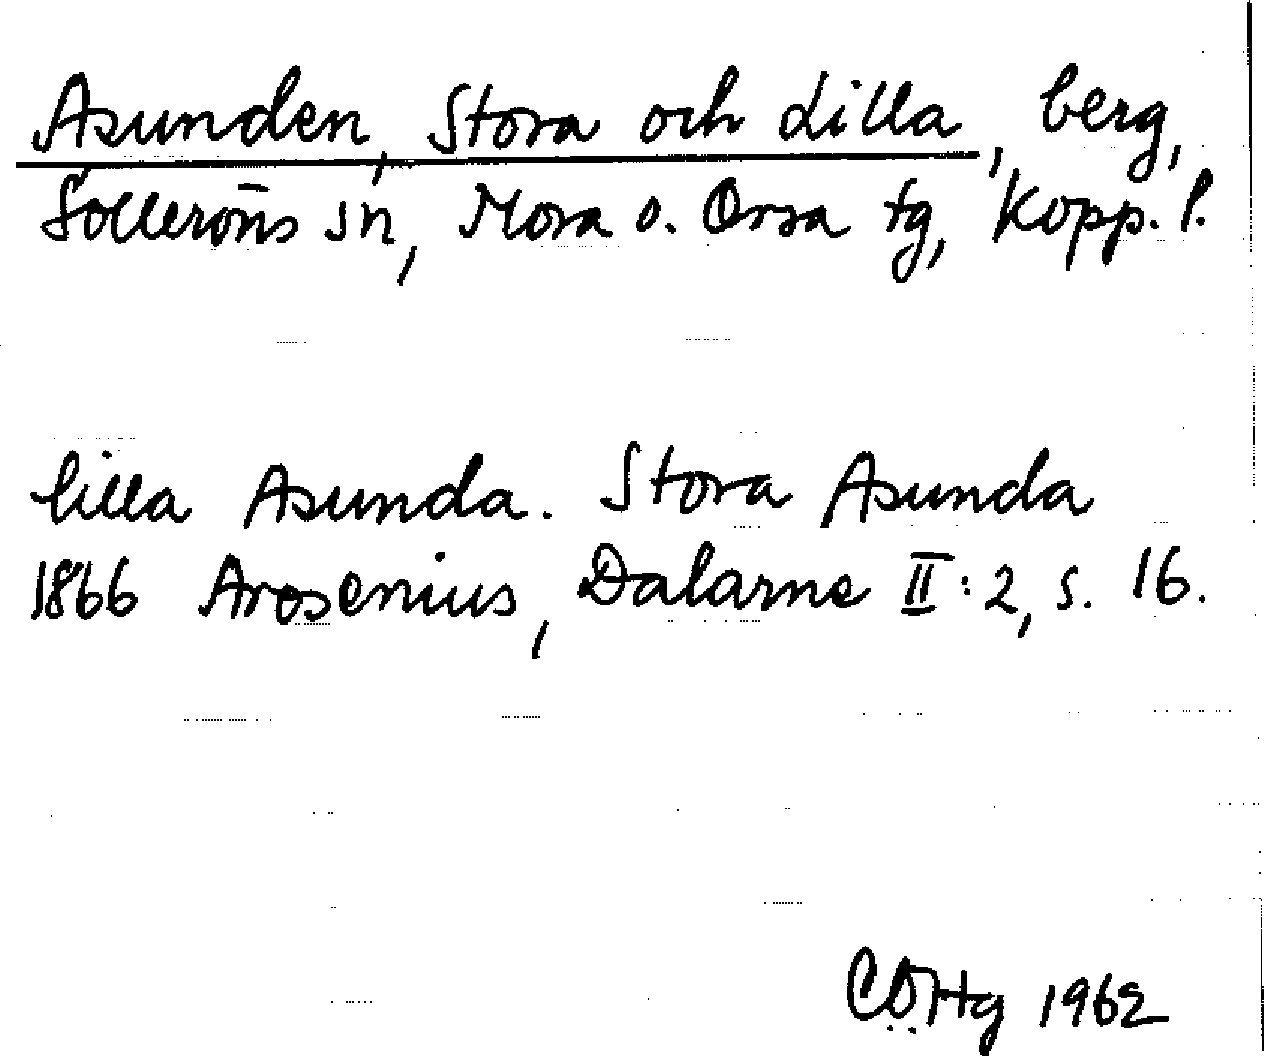 Asunden, Stora och Lilla, berg,
Solleröns sn, Mora o. Orsa tg, Kopp. l.
lilla Asunda. Stora Asunda
1866 Arosenius, Dalarne II:2, s. 16.
1962